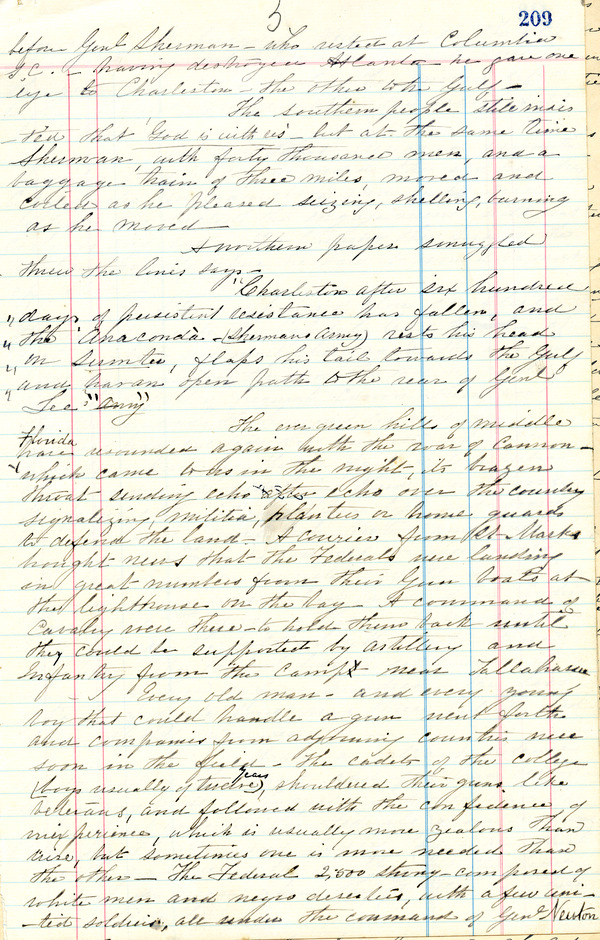 5
209
before Genl Sherman - who rested at Columbia
S.C. - having destroyed Atlanta - he gave one
eye to Charleston - the other to the Gulf -
The southern people still insis
-ted that 'God is with us' - but at the same time
Sherman, with forty thousand men, and a
baggage train of three miles, moved and
coiled as he pleased seizing, shelling, burning
as he moved -
A northern paper smuggled
threw the lines says -
"Charleston after six hundred
" days of persistent resistance has fallen, and
" the 'Anaconda' - (Shermans Army) rests his head
" on Sumter, flaps his tail towards the Gulf
" and has an open path to the rear of Genl
Lee" "Army"
The evergreen hills of middle
Florida
have resounded again with the roar of cannon -
which came to us in the night, its brazen
throat sending echo after echo over the country
signalizing, militia, planters or home guards
to defend the land - A courier from St Marks
brought news that the Federals were landing
in great numbers from their Gun boats at
the lighthouse on the bay - A command of
Cavalry were there - to hold them back until
they could be supported by artillery and
Infantry from the camp near Tallahassee
Every old man - and every young
boy that could handle a gun went forth
and companies from adjoining counties were
soon in the field - The cadets of the college
years
(boys usually of twelve), shouldered their guns like
veterans, and followed with the confidence of
inexperience, which is usually more zealous than
wise, but sometimes one is more needed than
the other - The Federal 2,500 strong - composed of
white men and negro deserters, with a few uni-
-ted soldiers, all under the command of Genl Newton